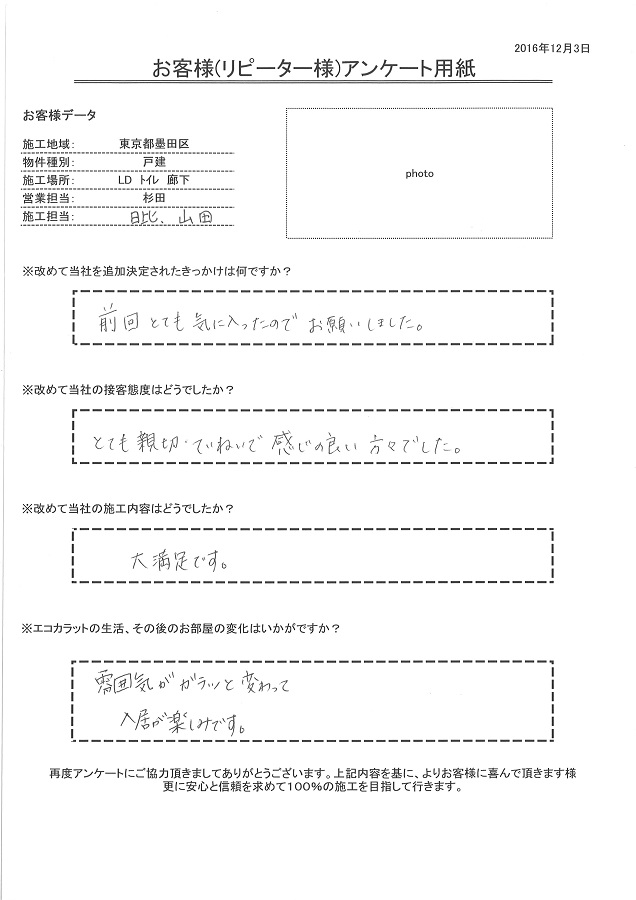 2016年12月3日
お客様(リピーター様)アンケート用紙
お客様データ
施工地域: 東京都墨田区
物件種別: 戸建
施工場所: LD トイレ 廊下
営業担当: 杉田
施工担当: 日比、山田
photo
※改めて当社を追加決定されたきっかけは何ですか？
前回とても気に入ったのでお願いしました。
※改めて当社の接客態度はどうでしたか？
とても親切・ていねいで感じの良い方々でした。
※改めて当社の施工内容はどうでしたか？
大満足です。
※エコカラットの生活、その後のお部屋の変化はいかがですか？
雰囲気がガラッと変わって
入居が楽しみです。
再度アンケートにご協力頂きましてありがとうございます。上記内容を基に、よりお客様に喜んで頂きます様
更に安心と信頼を求めて100%の施工を目指して行きます。